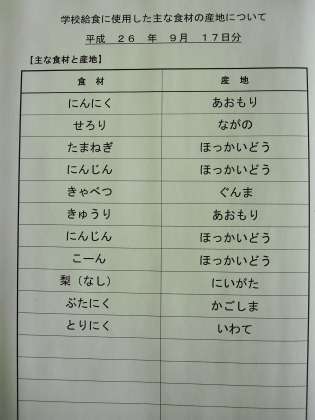 学校給食に使用した主な食材の産地について
平成 26 年 9月 17日分
【主な食材と産地】
食 材 産 地
にんにく あおもり
せろり ながの
たまねぎ ほっかいどう
にんじん ほっかいどう
きゃべつ ぐんま
きゅうり あおもり
にんじん ほっかいどう
こーん ほっかいどう
梨（なし） にいがた
ぶたにく かごしま
とりにく いわて